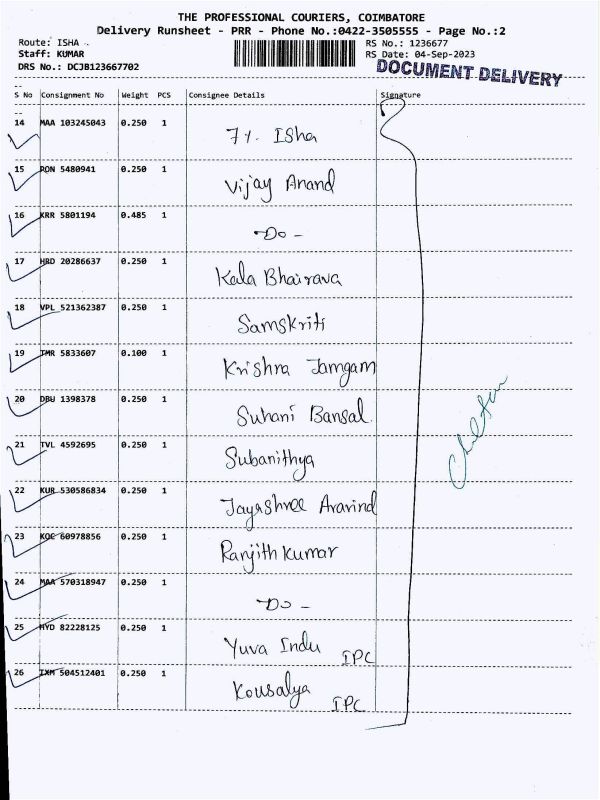 THE PROFESSIONAL COURIERS, COIMBATORE
Delivery Runsheet - PRR - Phone No.:0422-3505555 - Page No.:2
Route: ISHA RS No.: 1236677
Staff: KUMAR RS Date: 04-Sep-2023
DRS No.: DCJB123667702 DOCUMENT DELIVERY
S No Consignment No Weight PCS Consignee Details Signature
14 MAA 103245043 0.250 1 71. ISha
15 PON 5480941 0.250 1 Vijay Anand
16 KRR 5801194 0.485 1 -Do-
17 HRD 20286637 0.250 1 Kala Bhairava
18 VPL 521362387 0.250 1 Samskriti
19 TMR 5833607 0.100 1 Krishna Jamgam
20 DBU 1398378 0.250 1 Suhani Bansal
21 TVL 4592695 0.250 1 Subanithya
22 KUR 530586834 0.250 1 Jayashree Aravind
23 KOC 60978856 0.250 1 Ranjith Kumar
24 MAA 570318947 0.250 1 -Do-
25 HYD 82228125 0.250 1 Yuva Indu IPC
26 IXM 504512401 0.250 1 Kousalya IPC